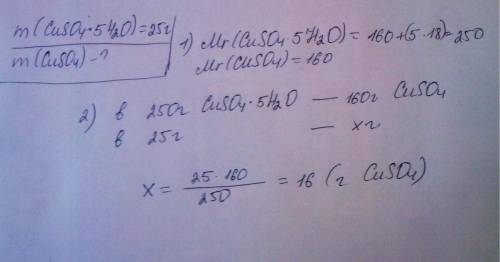 m(CuSO₄·5H₂O)=25г
m(CuSO₄)-?
1) Mr(CuSO₄·5H₂O)= 160+(5·18)=250
Mr(CuSO₄)=160
2) в 250г CuSO₄·5H₂O — 160г CuSO₄
в 25г — xг
x = 25·160/250 = 16 (г CuSO₄)